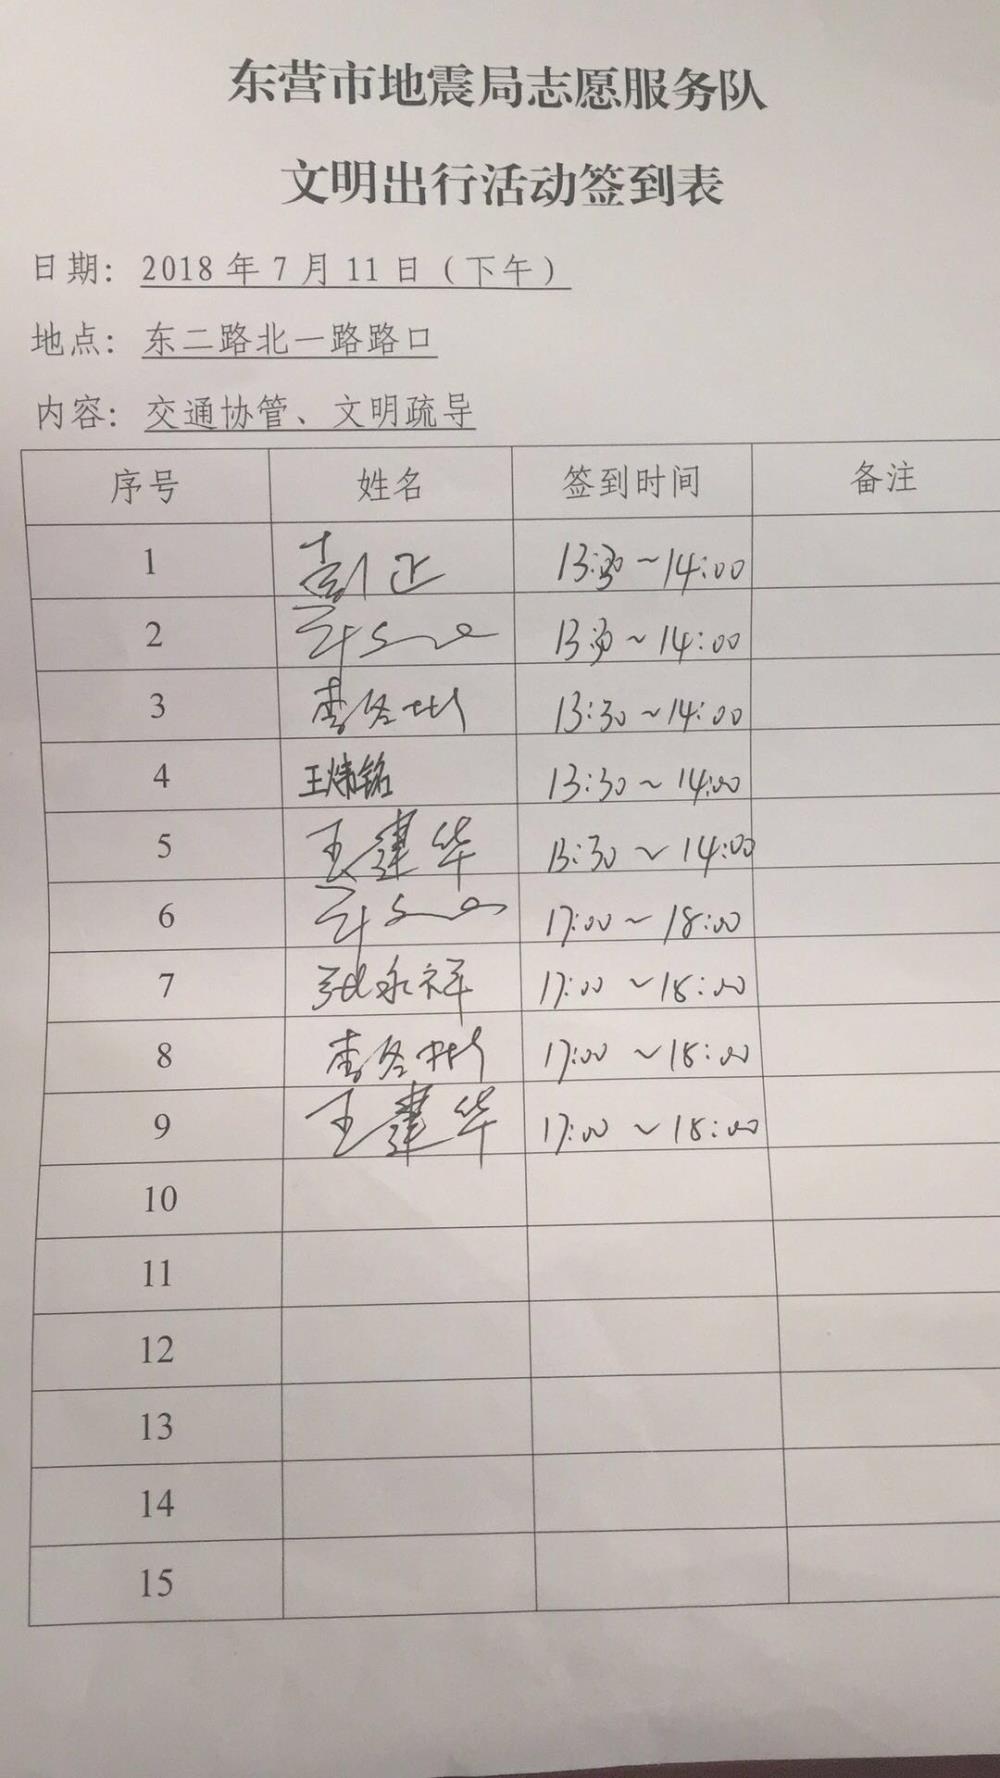 东营市地震局志愿服务队
文明出行活动签到表
日期: 2018 年 7 月 11 日（下午）
地点: 东二路北一路路口
内容: 交通协管、文明疏导
序号 姓名 签到时间 备注
1 彭正 13:30~14:00
2 13:30~14:00
3 李冬 13:30~14:00
4 王炜铭 13:30~14:00
5 王建华 13:30~14:00
6 17:00~18:00
7 张永祥 17:00~18:00
8 李冬 17:00~18:00
9 王建华 17:00~18:00
10
11
12
13
14
15